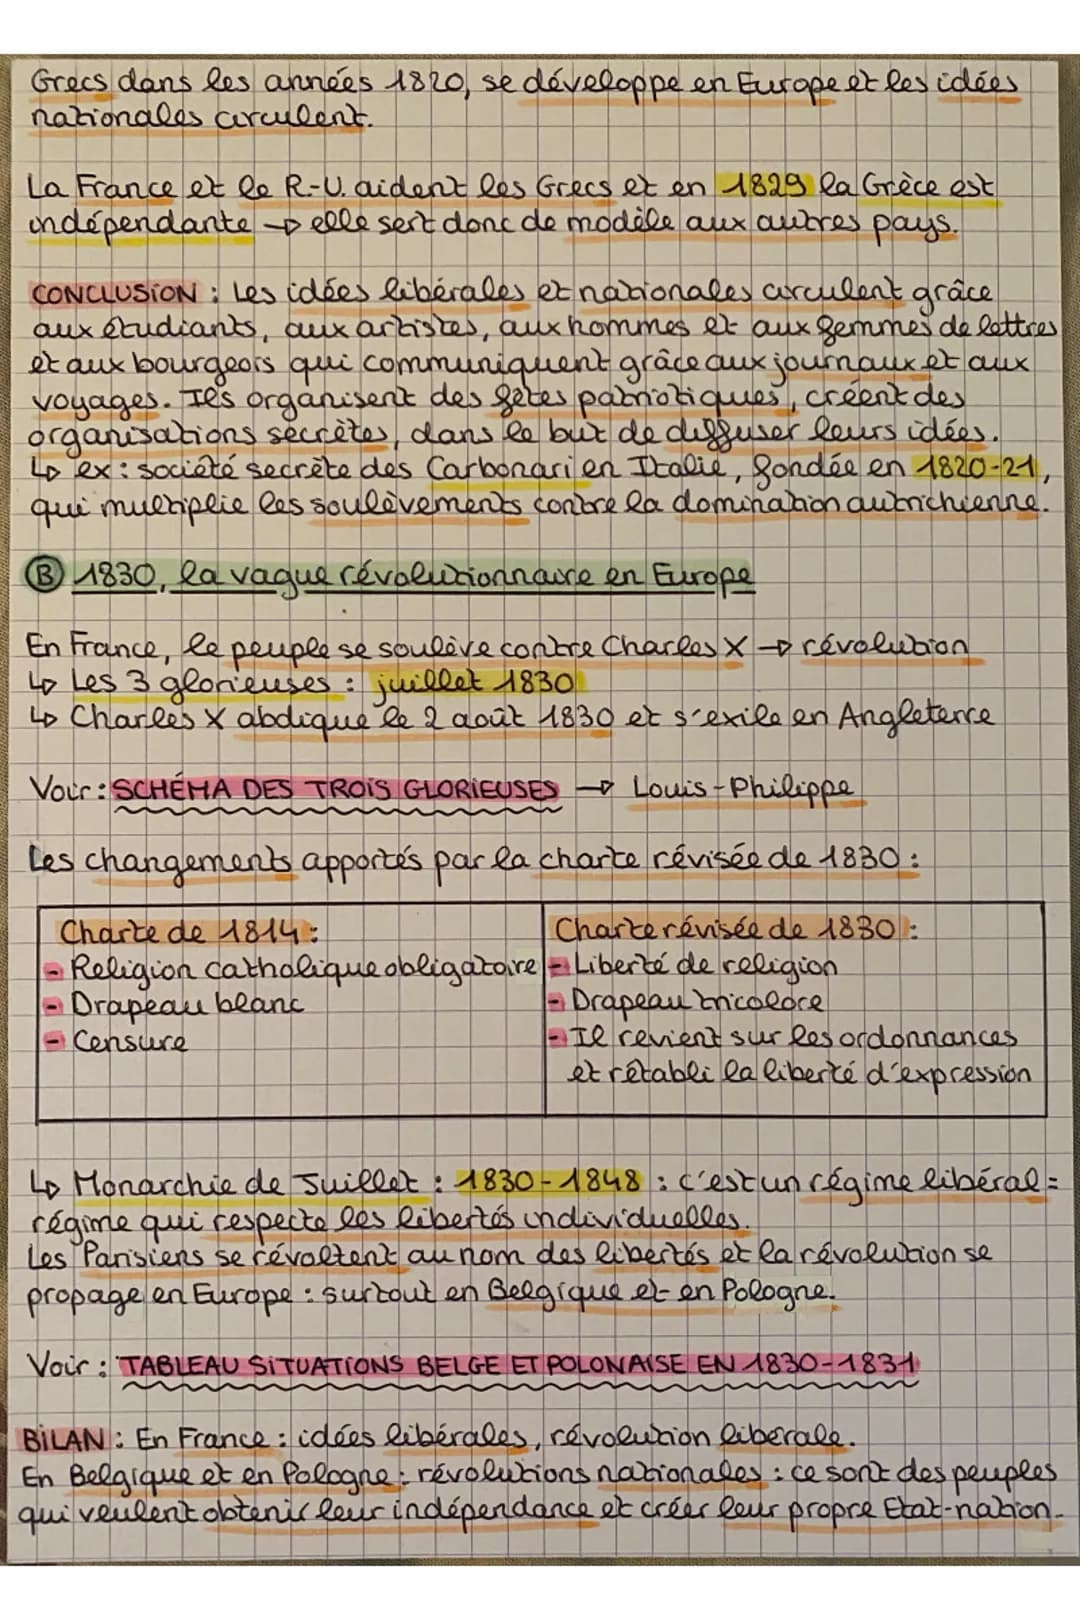 Grecs dans les années 1820, se développe en Europe et les idées
nationales circulent.
La France et le R-U. aident les Grecs et en 1829 la Grèce est
indépendante → elle sert donc de modèle aux autres pays.
CONCLUSION : Les idées libérales et nationales circulent grâce
aux étudiants, aux artistes, aux hommes et aux femmes de lettres
et aux bourgeois qui communiquent grâce aux journaux et aux
voyages. Ils organisent des fêtes patriotiques, créent des
organisations secrètes, dans le but de diffuser leurs idées.
↳ ex : société secrète des Carbonari en Italie, fondée en 1820-21,
qui multiplie les soulèvements contre la domination autrichienne.
B 1830, la vague révolutionnaire en Europe
En France, le peuple se soulève contre Charles X → révolution
↳ Les 3 glorieuses : juillet 1830
↳ Charles X abdique le 2 août 1830 et s'exile en Angleterre
Voir : SCHÉMA DES TROIS GLORIEUSES → Louis-Philippe
Les changements apportés par la charte révisée de 1830 :
Charte de 1814 :
- Religion catholique obligatoire
- Drapeau blanc
- Censure
Charte révisée de 1830 :
- Liberté de religion
- Drapeau tricolore
- Il revient sur les ordonnances
et rétabli la liberté d'expression
↳ Monarchie de Juillet : 1830-1848 : c'est un régime libéral =
régime qui respecte les libertés individuelles.
Les Parisiens se révoltent au nom des libertés et la révolution se
propage en Europe : surtout en Belgique et en Pologne.
Voir : TABLEAU SITUATIONS BELGE ET POLONAISE EN 1830-1831
BILAN : En France : idées libérales, révolution libérale.
En Belgique et en Pologne : révolutions nationales : ce sont des peuples
qui veulent obtenir leur indépendance et créer leur propre Etat-nation.